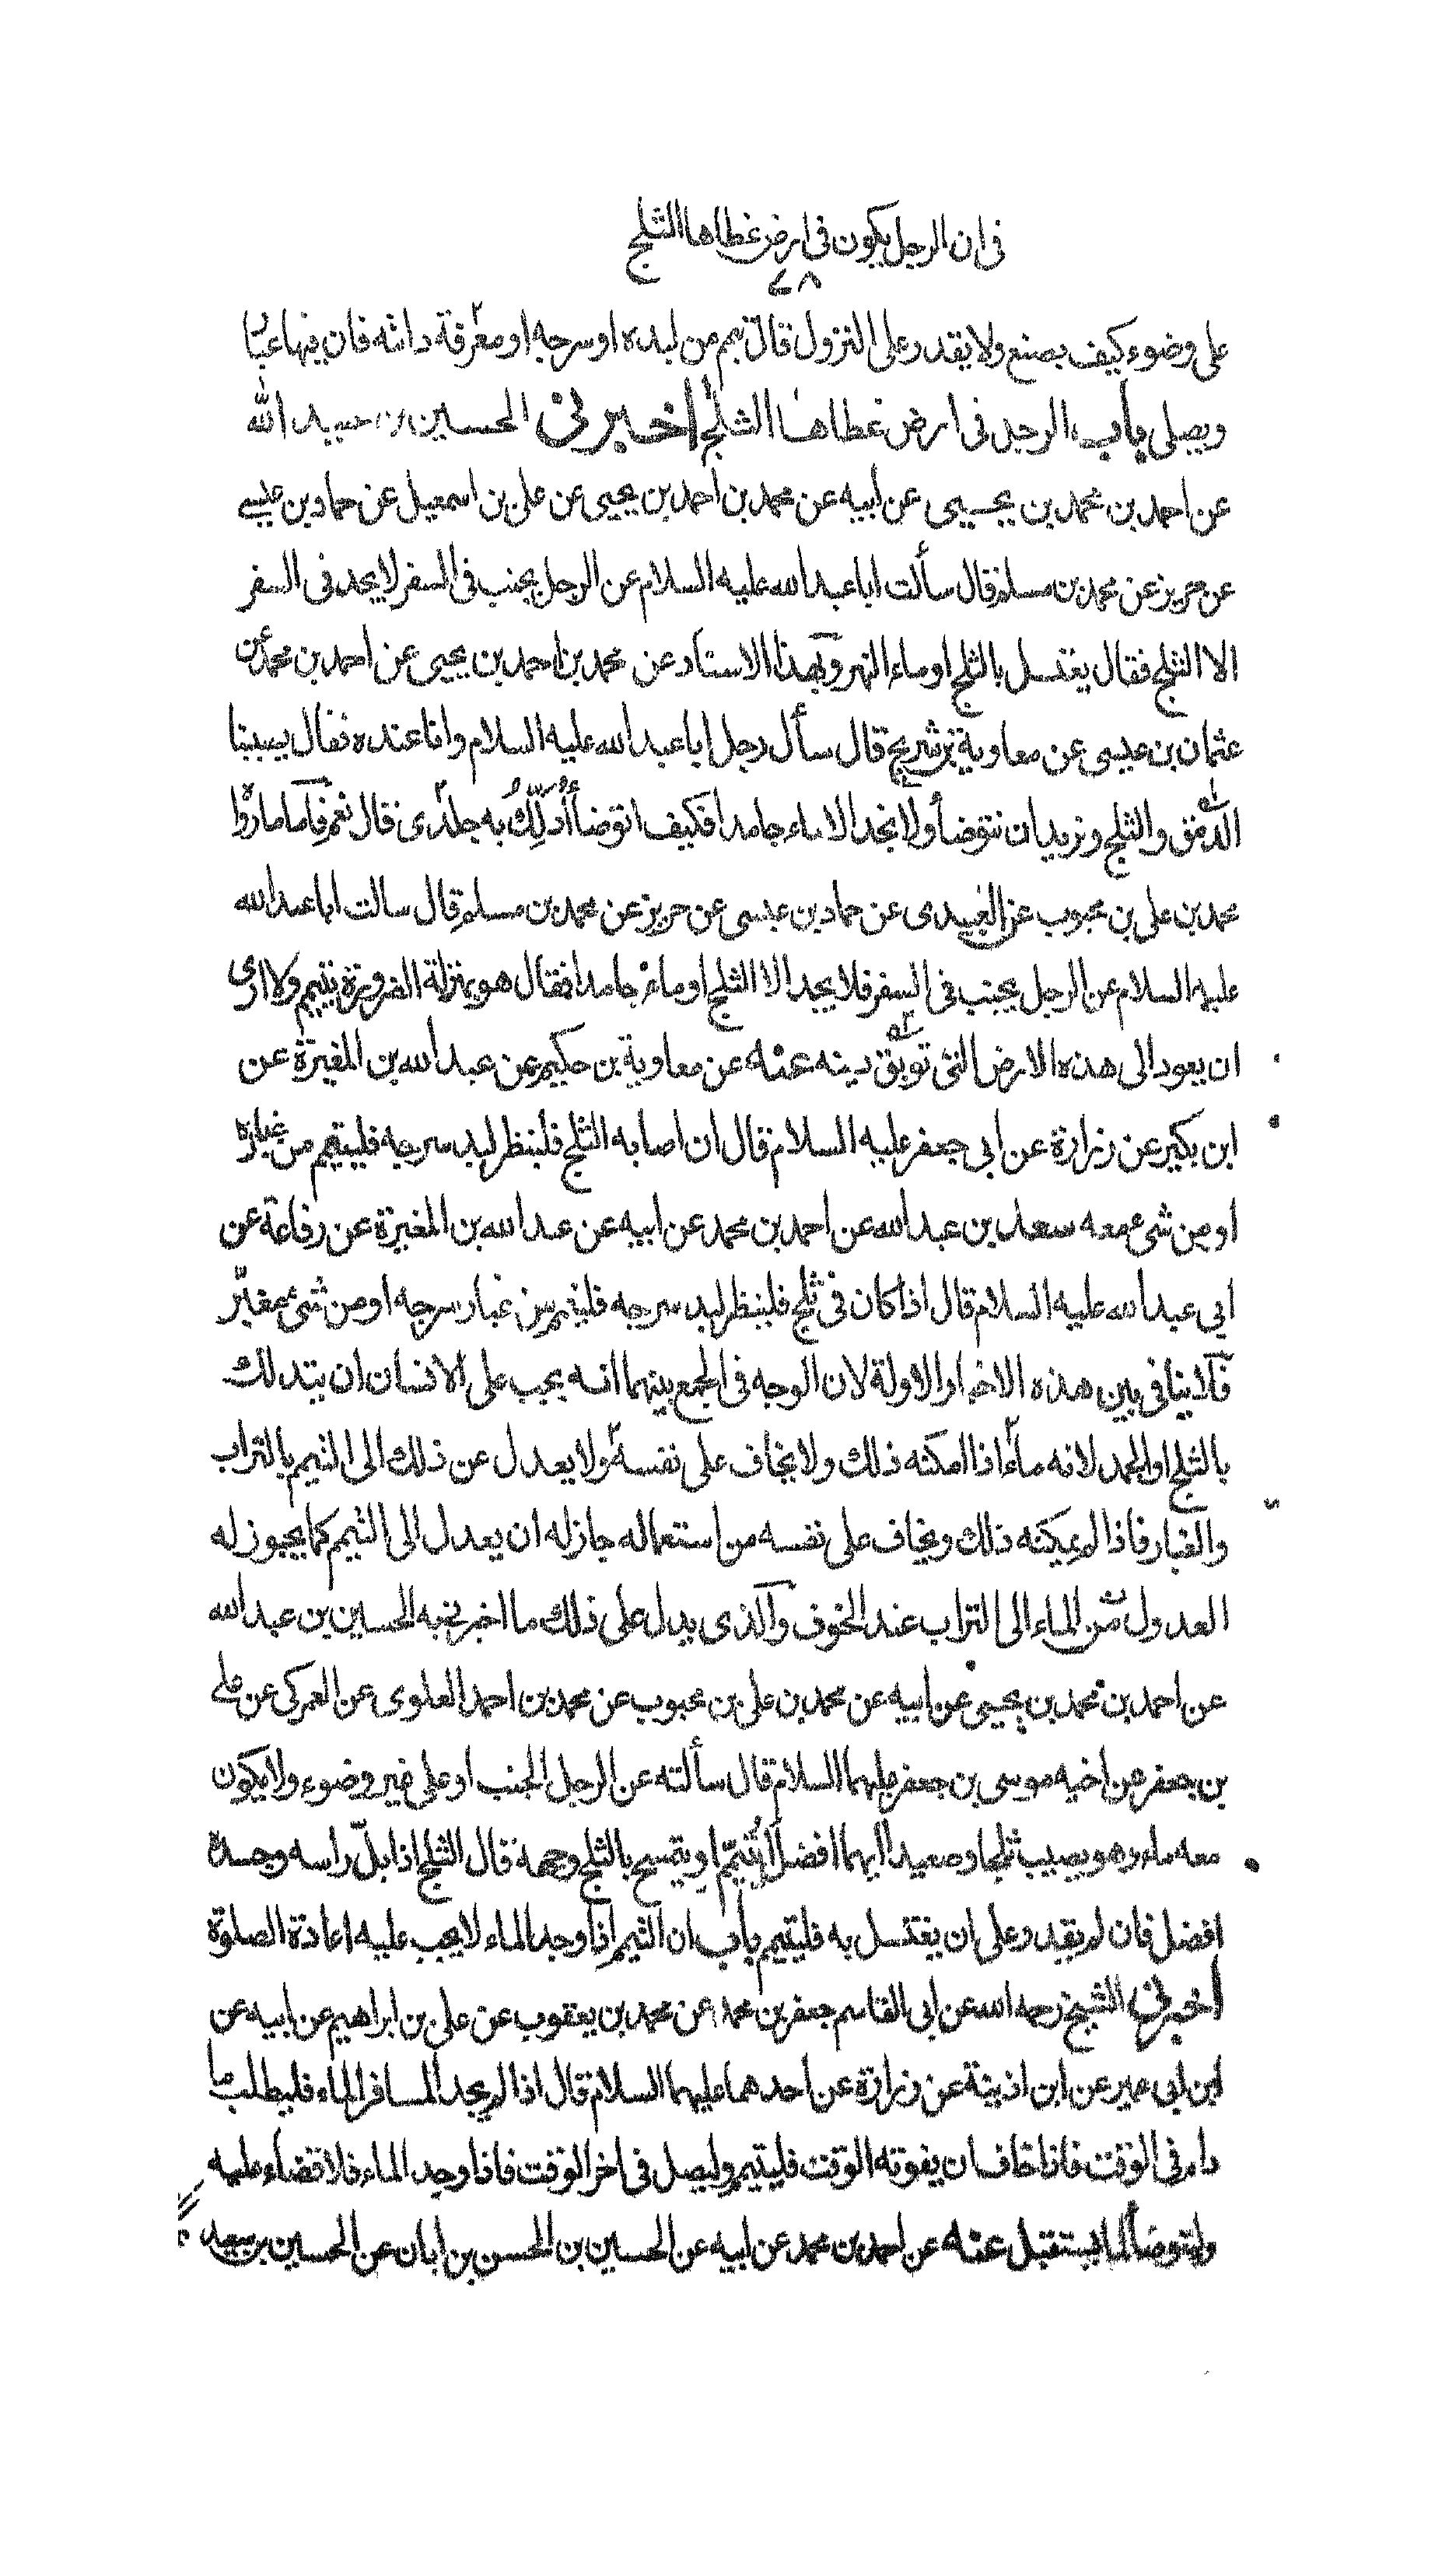 فى ان الرجل يكون فى ارض غطاها الثلج
٧٨
على وضوء كيف يصنع ولا يقدر على النزول قال تيمم من لبده او سرجه او معرفة دابته فان فيها غبارا
ويصلى باب الرجل فى ارض غطاها الثلج اخبرنى الحسين بن عبيد الله
عن احمد بن محمد بن يحيى عن ابيه عن محمد بن احمد بن يحيى عن على بن اسمعيل عن حماد بن عيسى
عن حريز عن محمد بن مسلم قال سألت ابا عبد الله عليه السلام عن الرجل يجنب فى السفر لا يجد فى السفر
الا الثلج فقال يغتسل بالثلج او ماء النهر وبهذا الاسناد عن محمد بن احمد بن يحيى عن احمد بن محمد عن
عثمان بن عيسى عن معاوية بن شريح قال سأل رجل ابا عبد الله عليه السلام وانا عنده فقال يصيبنا
الدمق والثلج ونريد ان نتوضأ ولا نجد الا ماء جامدا فكيف اتوضأ أدلك به جلدى قال نعم فاما ما رواه
محمد بن على بن محبوب عن العبيدى عن حماد بن عيسى عن حريز عن محمد بن مسلم قال سالت ابا عبد الله
عليه السلام عن الرجل يجنب فى السفر فلا يجد الا الثلج او ماء جامدا فقال هو بمنزلة الضرورة يتيمم ولا ارى
ان يعود الى هذه الارض التى توبق دينه عنه عن معاوية بن حكيم عن عبد الله بن المغيرة عن
ابن بكير عن زرارة عن ابى جعفر عليه السلام قال ان اصابه الثلج فلينظر لبد سرجه فليتيمم من غباره
او من شىء معه سعد بن عبد الله عن احمد بن محمد عن ابيه عن عبد الله بن المغيرة عن رفاعة عن
ابى عبد الله عليه السلام قال اذا كان فى ثلج فلينظر لبد سرجه فليتيمم من غبار سرجه او من شىء مغبر
فلا ينافى بين هذه الاخبار الاولة لان الوجه فى الجمع بينهما انه يجب على الانسان ان يتدلك
بالثلج او الجمد لانه ماء اذا امكنه ذلك ولا يخاف على نفسه ولا يعدل عن ذلك الى التيمم بالتراب
والغبار فاذا لم يمكنه ذلك ويخاف على نفسه من استعماله جاز له ان يعدل الى التيمم كما يجوز له
العدول من الماء الى التراب عند الخوف والذى يدل على ذلك ما اخبرنى به الحسين بن عبد الله
عن احمد بن محمد بن يحيى عن ابيه عن محمد بن على بن محبوب عن محمد بن احمد العلوى عن العمركى عن على
بن جعفر عن اخيه موسى بن جعفر عليهما السلام قال سألته عن الرجل الجنب او على غير وضوء ولا يكون
معه ماء وهو يصيب ثلجا وصعيدا ايهما افضل أيتيمم او يتمسح بالثلج وجهه قال الثلج اذا بل راسه وجسده
افضل فان لم يقدر على ان يغتسل به فليتيمم باب ان التيمم اذا وجد الماء لا يجب عليه اعادة الصلوة
اخبرنى الشيخ رحمه الله عن ابى القاسم جعفر بن محمد عن محمد بن يعقوب عن على بن ابراهيم عن ابيه عن
ابن ابى عمير عن ابن اذينة عن زرارة عن احدهما عليهما السلام قال اذا لم يجد المسافر الماء فليطلب ما
دام فى الوقت فاذا خاف ان يفوته الوقت فليتيمم وليصل فى اخر الوقت فاذا وجد الماء فلا قضاء عليه
وليتوضأ لما يستقبل عنه عن احمد بن محمد عن ابيه عن الحسين بن الحسن بن ابان عن الحسين بن سعيد